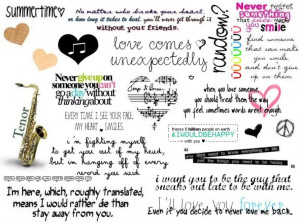 Summertime
No matter who broke your heart,
or how long it takes to heal, you'll never get through it
without your friends.
random?
Never regret
something
that once made you
smile
find someone
that can make
you smile,
and don't
give up
on them.
love comes
unexpectedly
Never give up on
someone you can't
go a day without
thinking about
EVERY TIME I SEE YOUR FACE,
MY HEART SMILES
when you love someone,
you should treat them the way
you feel, sometimes words aren't enough.
Tenor
there's 6 billion people on earth
& I WOULD BE HAPPY
with you
i'm fighting myself
to get you out of my head,
but im hanging off of every
word you said
I'm here, which, roughly translated,
means I would rather die than
stay away from you.
i want you to be the guy that
sneaks out late to be with me.
I'll love you forever
Even if you decide to never love me back.